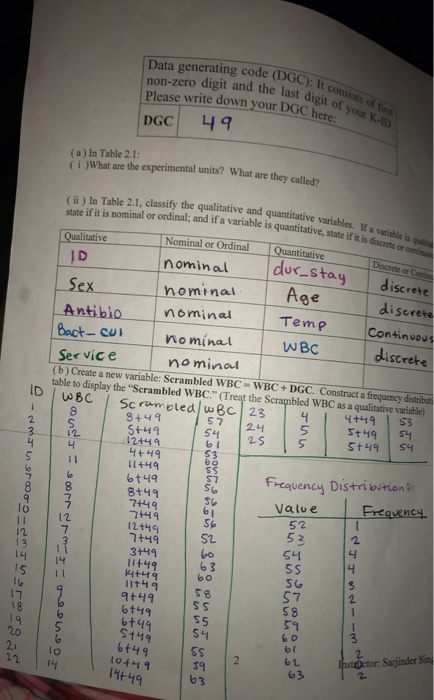 Data generating code (DGC): It consists of first
non-zero digit and the last digit of your K-ID.
Please write down your DGC here:
DGC 49
(a) In Table 2.1:
(i) What are the experimental units? What are they called?
(ii) In Table 2.1, classify the qualitative and quantitative variables. If a variable is
state if it is nominal or ordinal; and if a variable is quantitative, state if it is discrete or
Qualitative Nominal or Ordinal Quantitative Discrete or
ID nominal dur_stay discrete
Sex nominal Age discrete
Antibio nominal Temp Continuous
Bact_cul nominal WBC discrete
Service nominal
(b) Create a new variable: Scrambled WBC = WBC + DGC. Construct a frequency
table to display the "Scrambled WBC." (Treat the Scrambled WBC as a qualitative variable)
ID WBC Scrambled WBC
23 4 4+49 53
24 5 5+49 54
25 5 5+49 54
1 8 8+49 57
2 5 5+49 54
3 12 12+49 61
4 4 4+49 53
5 11 11+49 60
6 6+49 55
7 6 8+49 57
8 8 7+49 56
9 7 7+49 56
10 7 12+49 61
11 12 7+49 56
12 7 3+49 52
13 3 11+49 60
14 11 14+49 63
15 14 11+49 60
16 11 9+49 58
17 9 6+49 55
18 6 6+49 55
19 6 5+49 54
20 5 6+49 55
21 6 10+49 59
22 10 14+49 63
14
Frequency Distribution:
Value Frequency
52 1
53 2
54 4
55 4
56 3
57 2
58 1
59 1
60 3
61 2
62
63 2
2
Instructor: Sarjinder